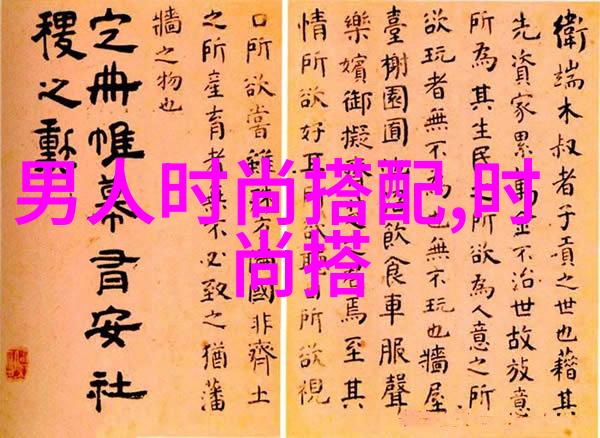 男人时尚搭配,时
尚搭
衛端木叔者子貢之世也藉其
先資家累萬不治世故放意
所為其生民所欲為人意之所
欲玩者無不為也無不玩也牆屋
臺榭園囿飲食車服聲
樂嬪御擬君焉至其
情所欲好耳所欲視
口所欲嘗雖殊方國非齊土
之所產育者無不必致之猶藩
牆之物也
定冊帷幕有安社
稷之勳